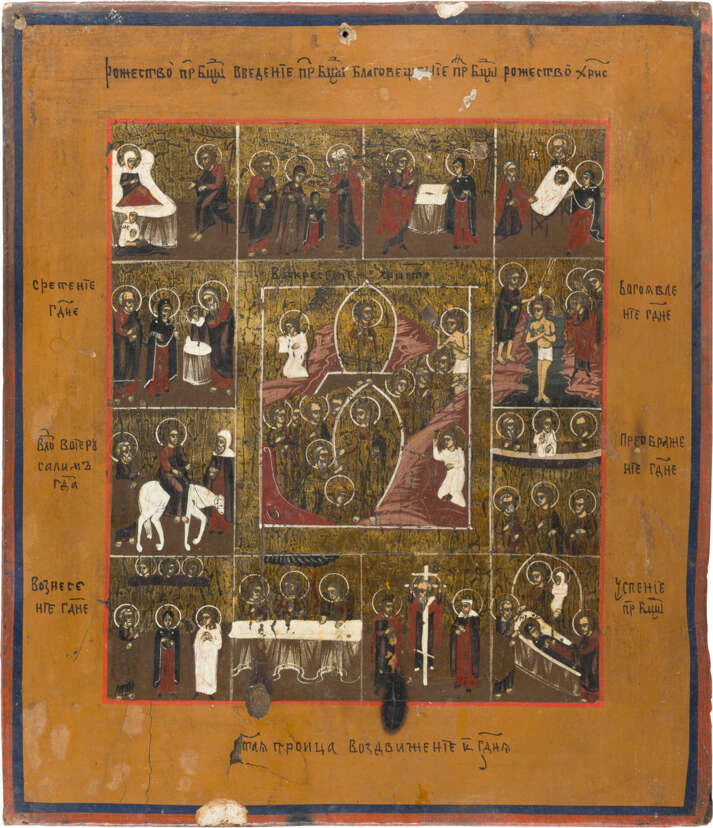 рожество пр Бцы введенїе пр Бцы благовещенїе пр Бцы рожество христ
Воскресенїе христо
сретенїе
гдне
Богоявле
нїе гдне
въѣо во іеру
салимъ
гда
преображе
нїе гдне
вознесе
нїе гдне
успенїе
пр Бцы
стая троица воздвиженїе к гдня